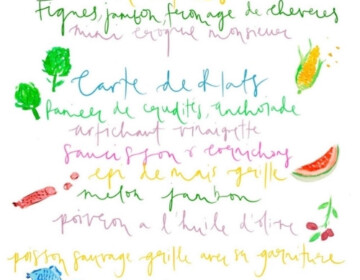 Figues, jambon, fromage de cheveres
mini croque monsieur
Carte de Plats
Panier de crudités, anchoiade
artichaut vinaigrette
Saucisson & cornichons
epi de mais grille
melon jambon
poivron a l'huile d'olive
poisson sauvage grille avec sa garniture